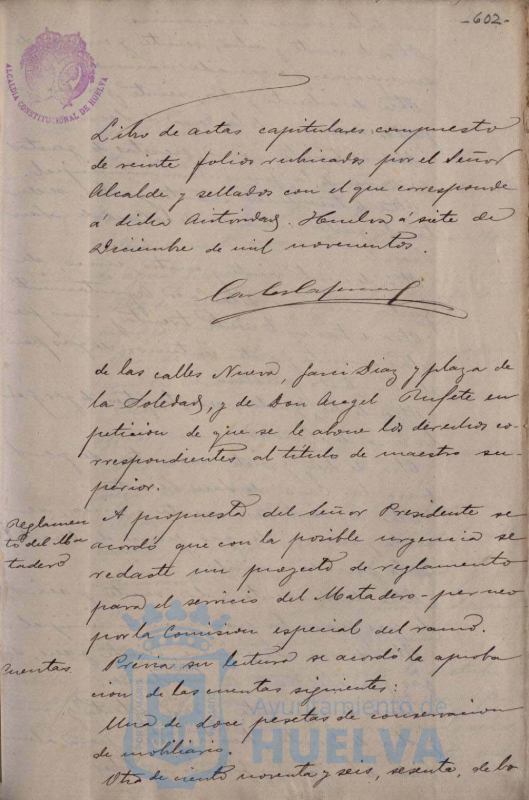 -602-
ALCALDIA CONSTITUCIONAL DE HUELVA
Libro de actas capitulares compuesto
de veinte folios rubricados por el Señor
Alcalde y sellados con el que corresponde
á dicha Autoridad. Huelva á siete de
Diciembre de mil novecientos.
de las calles Nueva, Garci Diaz y plaza de
la Soledad, y de Don Angel Rufete en
peticion de que se le abone los derechos co-
rrespondientes al titulo de maestro su-
perior.
Reglamen
to del Ma
tadero
A propuesta del Señor Presidente se
acordó que con la posible urgencia se
redacte un proyecto de reglamento
para el servicio del Matadero
por la Comision especial del ramo.
Cuentas
Prévia su lectura se acordó la aproba
cion de las cuentas siguientes:
Una de doce pesetas de conservacion
de mobiliario.
Otra de ciento noventa y seis, sesenta, de lo
Ayuntamiento de
HUELVA